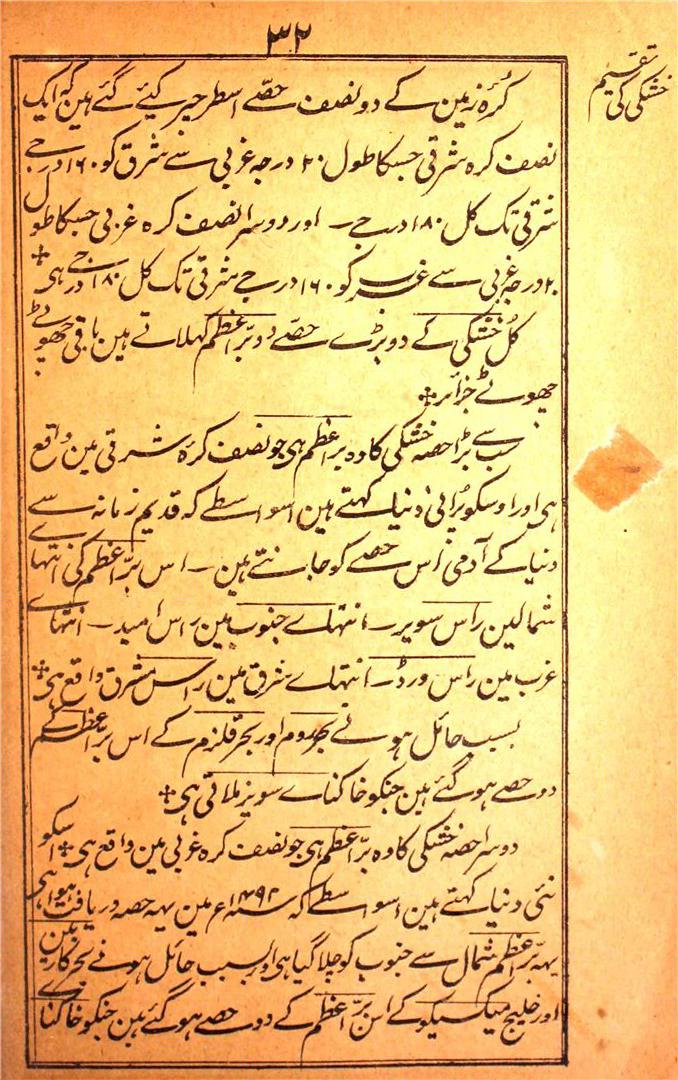 ۳۲
تقسیم
خشکی کی
کُرۂ زمین کے دو نصف حصّے اسطرحپر کیئے گئے ہین کہ ایک
نصف کرہ شرقی جسکا طول ۲۰ درجہ غربی سے شرق کو ۱۶۰ درجے
شرقی تک کل ۱۸۰ درجے ۔ اور دوسرا نصف کرہ غربی جسکا طول
۲۰ درجہ غربی سے غرب کو ۱۶۰ درجے شرقی تک کل ۱۸۰ درجے ہی
کل خشکی کے دو بڑے حصّے دو برّ اعظم کہلاتے ہین باقی چھوٹے
چھوٹے جزائر
سب سے بڑا حصہ خشکی کا وہ بر اعظم ہی جو نصف کرۂ شرقی مین واقع
ہی اور اوسکو پُرانی دنیا کہتے ہین اسواسطے کہ قدیم زمانہ سے
دنیا کے آدمی اس حصے کو جانتے ہین ۔ اس برّ اعظم کی انتہاے
شمالمین راس سویر ۔ انتہاے جنوب مین راس امید ۔ انتہاے
غرب مین راس ورڈ ۔ انتہاے شرق مین راس مشرق واقع ہی
بسبب حائل ہونے بحر روم اور بحر قلزم کے اس بر اعظم کے
دو حصے ہو گئے ہین جنکو خاکناے سویز ملاتی ہی
دوسرا حصہ خشکی کا وہ برّ اعظم ہی جو نصف کرہ غربی مین واقع ہی اسکو
نئی دنیا کہتے ہین اسواسطے کہ سنہ ۱۴۹۲ ع مین یہہ حصہ دریافت ہوا ہی
یہہ برّ اعظم شمال سے جنوب کو چلا گیا ہی اور بسبب حائل ہونے بحر کاریبین
اور خلیج میکسیکو کے اس برّ اعظم کے دو حصے ہو گئے ہین جنکو خاکناے